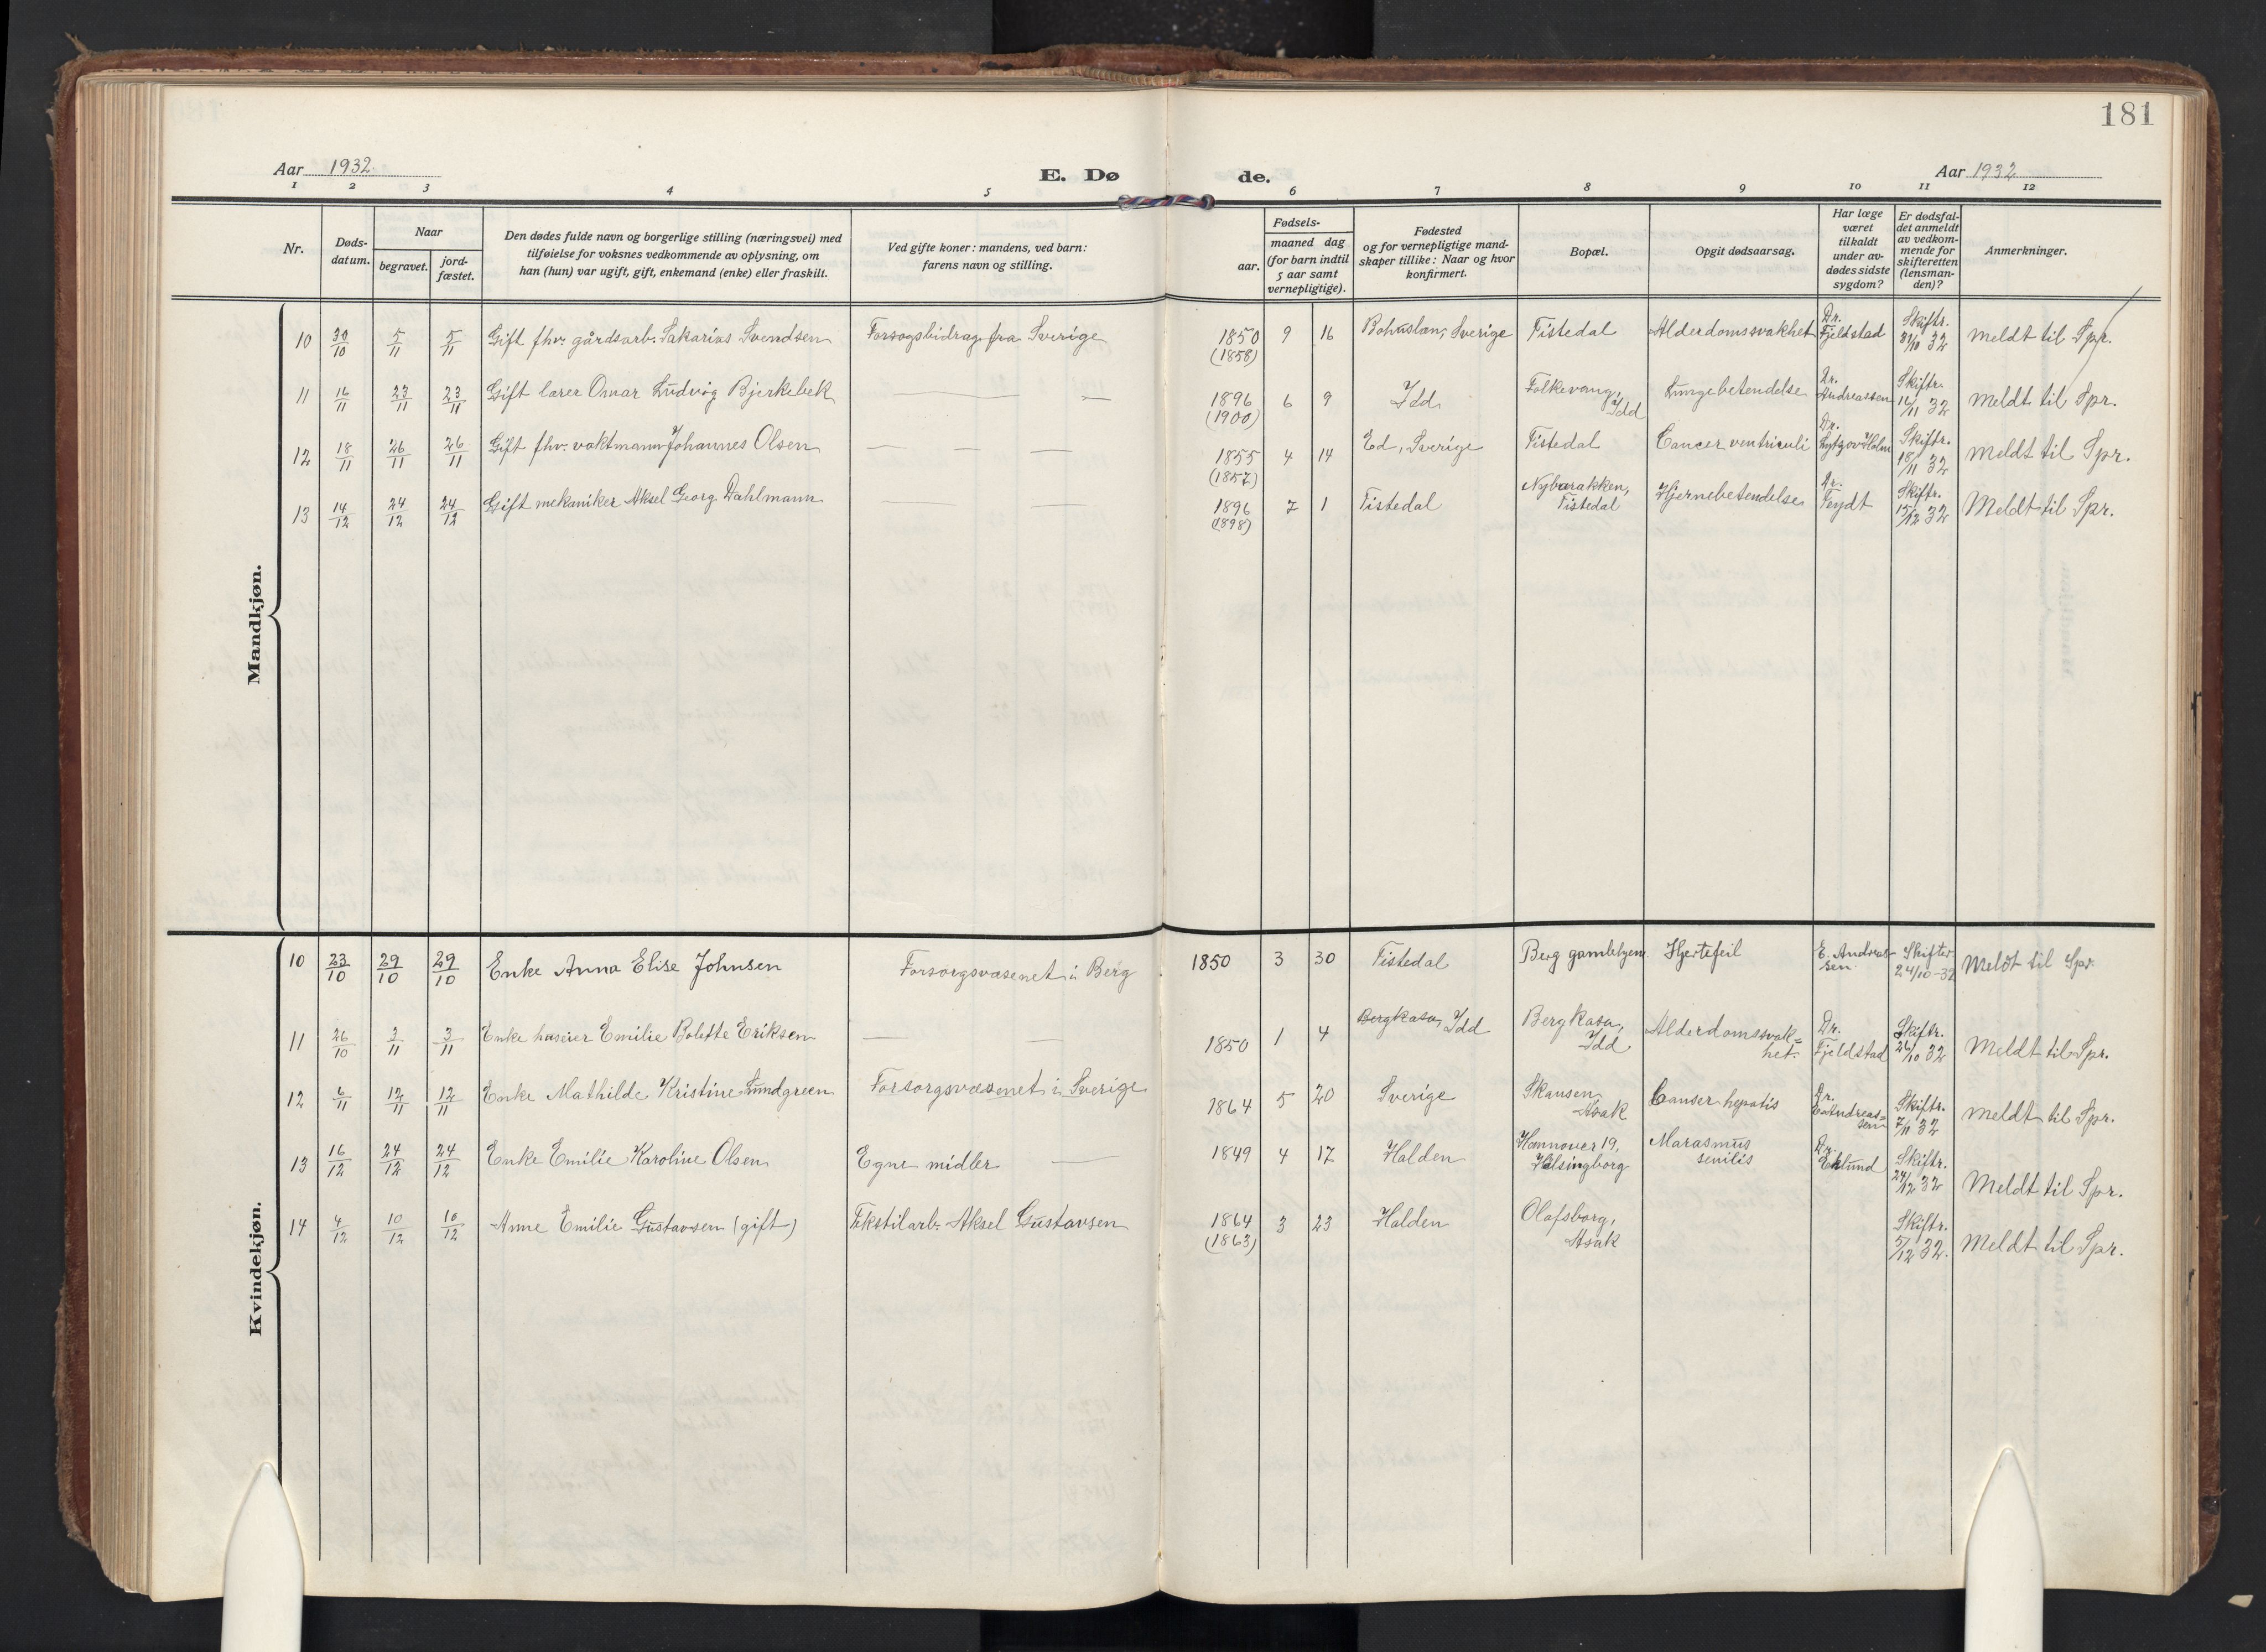 181
Aar 1932
E. Dø de.
Aar 1932
1 2 3 4 5 6 7 8 9 10 11 12
Nr.
Døds-
datum.
Naar
begravet.
jord-
fæstet.
Den dødes fulde navn og borgerlige stilling (næringsvei) med
tilføielse for voksnes vedkommende av oplysning, om
han (hun) var ugift, gift, enkemand (enke) eller fraskilt.
Ved gifte koner: mandens, ved barn:
farens navn og stilling.
Fødsels-
aar.
maaned dag
(for barn indtil
5 aar samt
vernepligtige).
Fødested
og for vernepligtige mand-
skaper tillike: Naar og hvor
konfirmert.
Bopæl.
Opgit dødsaarsag.
Har læge
været
tilkaldt
under av-
dødes sidste
sygdom?
Er dødsfal-
det anmeldt
av vedkom-
mende for
skifteretten
(lensman-
den)?
Anmerkninger.
Mandkjøn.
10 30/10 5/11 5/11 Gift fhv. gårdsarb. Sakarias Svendsen Forsogsbidrag fra Sverige 1850 (1858) 9 16 Bohuslæn, Sverige Tistedal Alderdomssvakhet Dr. Fjeldstad Skiftr. 31/10 32 Meldt til Spr.
11 16/11 23/11 23/11 Gift lærer Onar Ludvig Bjerkebek — — 1896 (1900) 6 9 Idd Folkevang, Idd Lungebetendelse Dr. Andreassen Skiftr. 16/11 32 Meldt til Spr.
12 18/11 26/11 26/11 Gift fhv. vaktmann Johannes Olsen — — — 1855 (1857) 4 14 Ed, Sverige Tistedal Cancer ventriculi Dr. Holm Skiftr. 18/11 32 Meldt til Spr.
13 14/12 24/12 24/12 Gift mekaniker Aksel Georg Dahlmann — — 1896 (1898) 7 1 Tistedal Nybarakken, Tistedal Hjernebetendelse Dr. Feydt Skiftr. 15/12 32 Meldt til Spr.
Kvindekjøn.
10 23/10 29/10 29/10 Enke Anna Elise Johnsen Forsorgsvæsenet i Berg 1850 3 30 Tistedal Berg gamlehjem Hjertefeil E. Andreas- sen Skifter. 24/10-32 Meldt til Spr.
11 26/10 3/11 3/11 Enke huseier Emilie Bolette Eriksen — — 1850 1 4 Bergkasa, Idd Bergkasa, Idd Alderdomssvak= het. Dr. Fjeldstad Skiftr. 26/10 32 Meldt til Spr.
12 6/11 12/11 12/11 Enke Mathilde Kristine Lundgreen Forsorgsvæsenet i Sverige 1864 5 20 Sverige Skansen, Asak Canser hepatis Dr. E. Andreas= sen Skiftr. 7/11 32 Meldt til Spr.
13 16/12 24/12 24/12 Enke Emilie Karoline Olsen Egne midler — 1849 4 17 Halden Hannover 19, Helsingborg Marasmus senilis Dr. Eklund Skiftr. 24/12 32 Meldt til Spr.
14 4/12 10/12 10/12 Anne Emilie Gustavsen (gift) Tekstilarb. Aksel Gustavsen 1864 (1863) 3 23 Halden Olafsborg, Asak Skiftr. 5/12 32. Meldt til Spr.